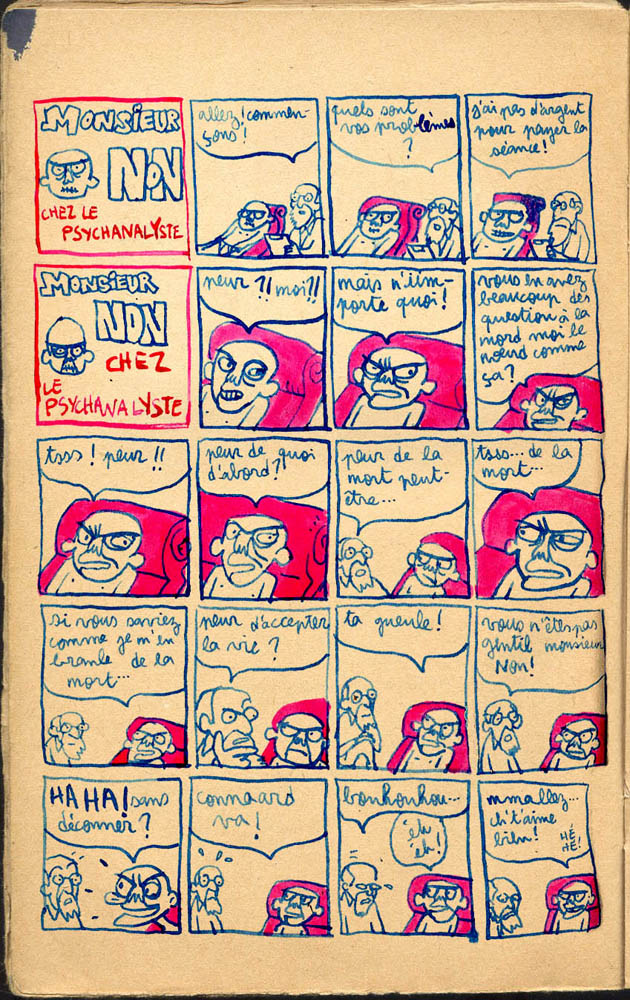 MONSIEUR
NON
CHEZ LE
PSYCHANALYSTE
allez! commen-
çons!
quels sont
vos problèmes
?
j'ai pas d'argent
pour payer la
séance!
MONSIEUR
NON
CHEZ
LE
PSYCHANALYSTE
peur ?! moi?!
mais n'im-
porte quoi!
vous en avez
beaucoup des
question à la
mord moi le
nœud comme
ça?
tsss! peur!!
peur de quoi
d'abord?!
peur de la
mort peut-
être...
tsss... de la
mort...
si vous saviez
comme je m'en
branle de la
mort...
peur d'accepter
la vie?
ta gueule!
vous n'êtes pas
gentil monsieur
Non!
HA HA! sans
déconner?
connaard
va!
bouhouhou...
éh
éh!
mmallez...
ch't'aime
bien!
HÉ
HÉ!